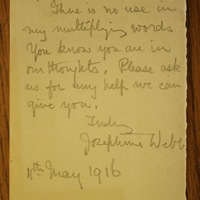 There is no use in
my multiplying words
You know you are in
our thoughts. Please ask
us for any help we can
give you.
Truly
Josephine Webb
11th May 1916